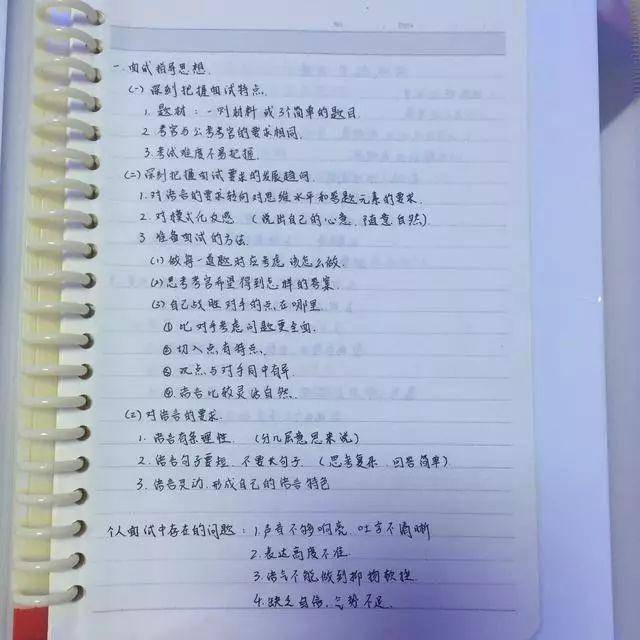 一.面试指导思想.
(一)深刻把握面试特点.
1.题材：一则材料或3个简单的题目
2.考官与公考考官的要求相同.
3.考试难度不易把握.
(二)深刻把握面试要求的发展趋向.
1.对语言的要求转向对思维水平和思想元素的要求.
2.对模式化反感 (说出自己的心意，随意自然).
3.准备面试的方法.
(1)做每一道题时应考虑该怎么做.
(2)思考考官希望得到怎样的答案
(3)自己战胜对手的点在哪里.
①比对手考虑问题更全面.
②切入点有特点.
③观点与对手同中有异.
④语言比较灵活自然.
(2)对语言的要求.
1.语言有条理性. (分几层意思来说)
2.语言句子要短，不要大句子. (思考复杂，回答简单)
3.语言灵动，形成自己的语言特色
个人面试中存在的问题：1.声音不够响亮.吐字不清晰
2.表达高度不准.
3.语气不能做到抑扬
4.缺乏自信，气势不足.